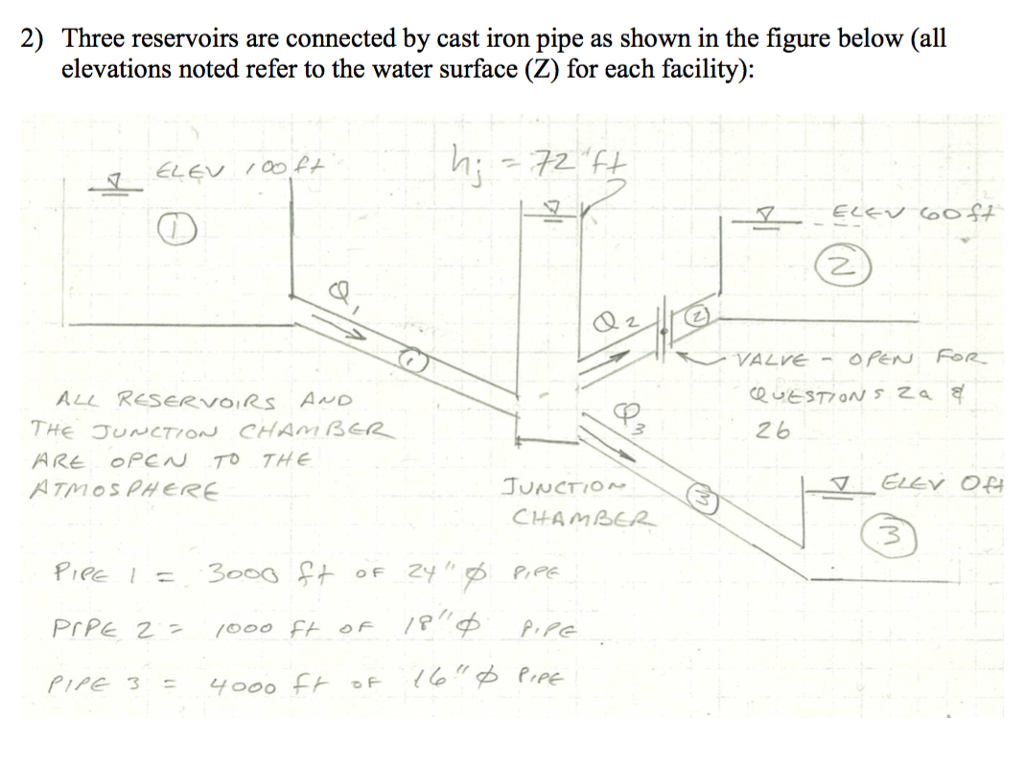 2) Three reservoirs are connected by cast iron pipe as shown in the figure below (all
elevations noted refer to the water surface (Z) for each facility):
ELEV 100 ft
hj = 72 ft
?
ELEV 60 ft
1
2
Q1
Q2
2
1
VALVE - OPEN FOR
QUESTIONS 2a &
2b
ALL RESERVOIRS AND
THE JUNCTION CHAMBER
ARE OPEN TO THE
ATMOSPHERE
Q3
3
JUNCTION
CHAMBER
ELEV 0ft
3
PIPE 1 = 3000 ft OF 24" ϕ PIPE
PIPE 2 = 1000 ft OF 18" ϕ PIPE
PIPE 3 = 4000 ft OF 16" ϕ PIPE